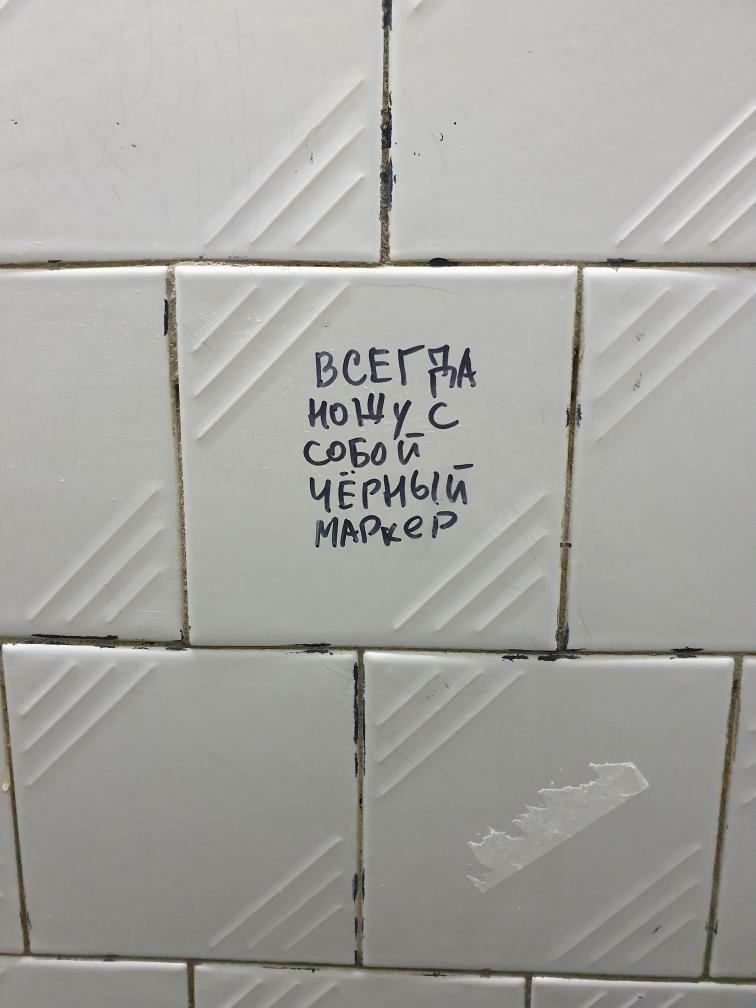 ВСЕГДА
НОШУ С
СОБОЙ
ЧЁРНЫЙ
МАРКЕР